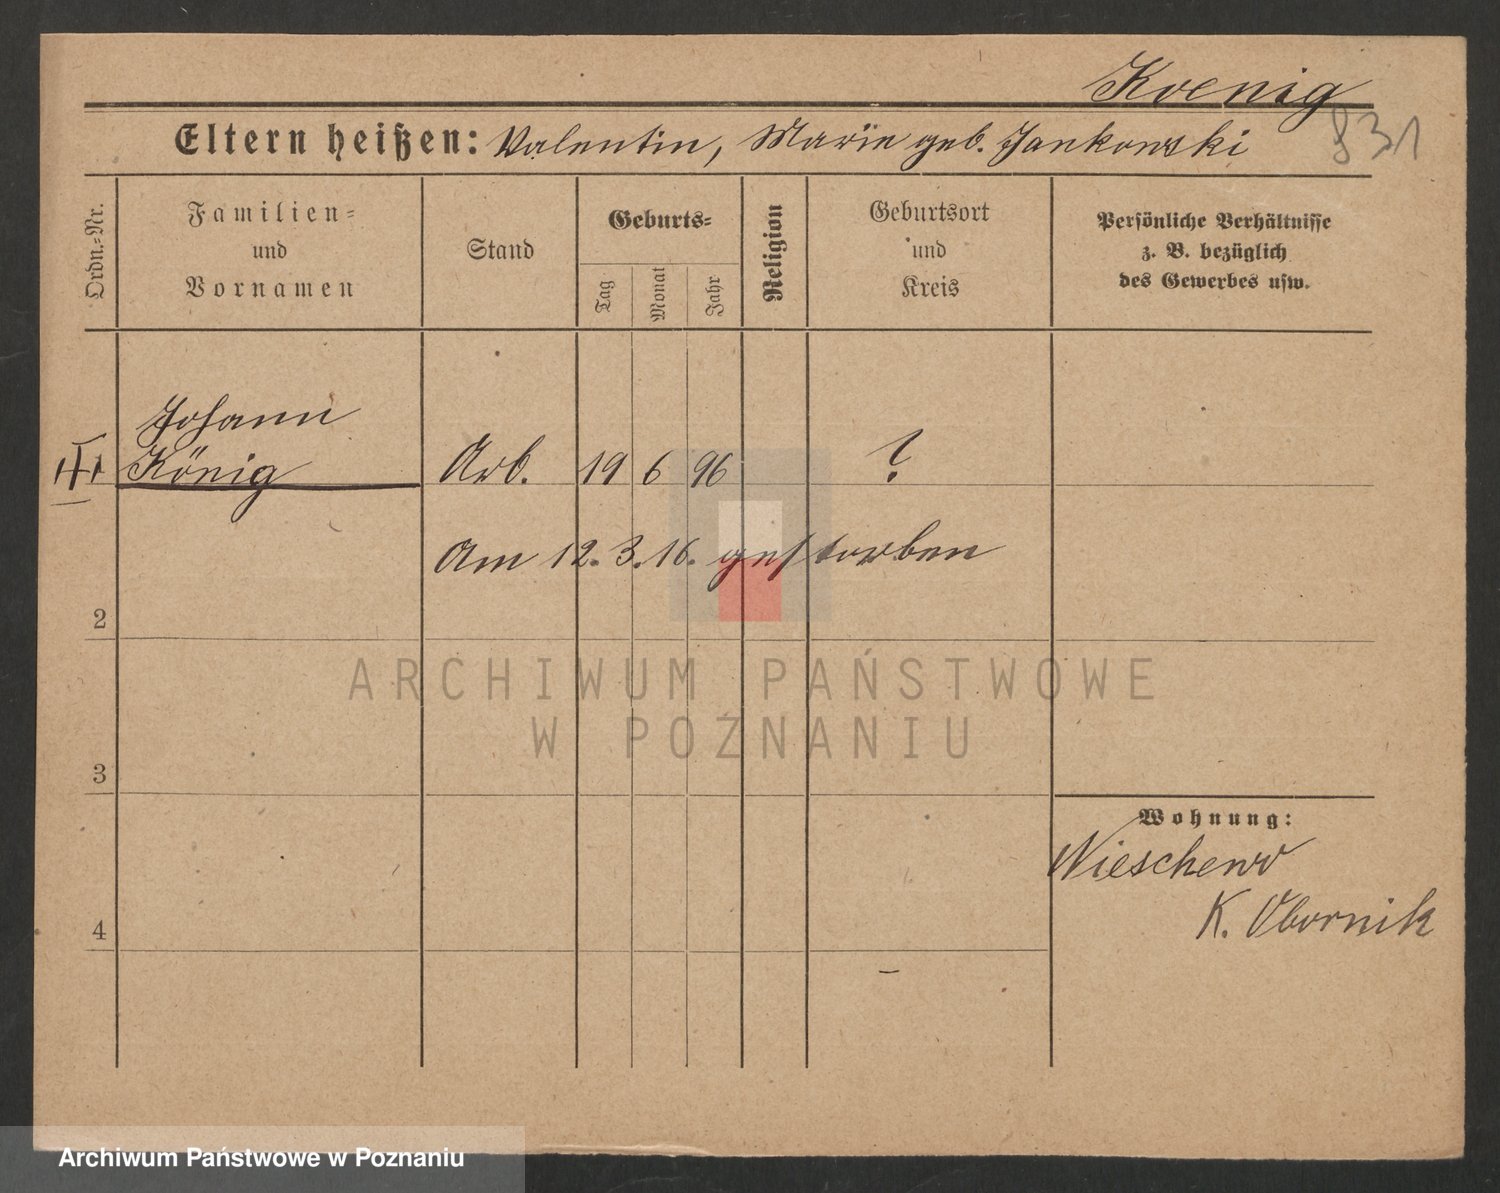 Koenig
831
Eltern heißen: Valentin, Marie geb. Jankowski
Ordn.=Nr.
Familien=
und
Vornamen
Stand
Geburts=
Tag
Monat
Jahr
Religion
Geburtsort
und
Kreis
Persönliche Verhältnisse
z. B. bezüglich
des Gewerbes usw.
Johann
König Arb. 19 6 96 ?
Am 12. 3. 16. gestorben
2
3
4
Wohnung:
K. Obornik
ARCHIWUM PAŃSTWOWE
W POZNANIU
Archiwum Państwowe w Poznaniu